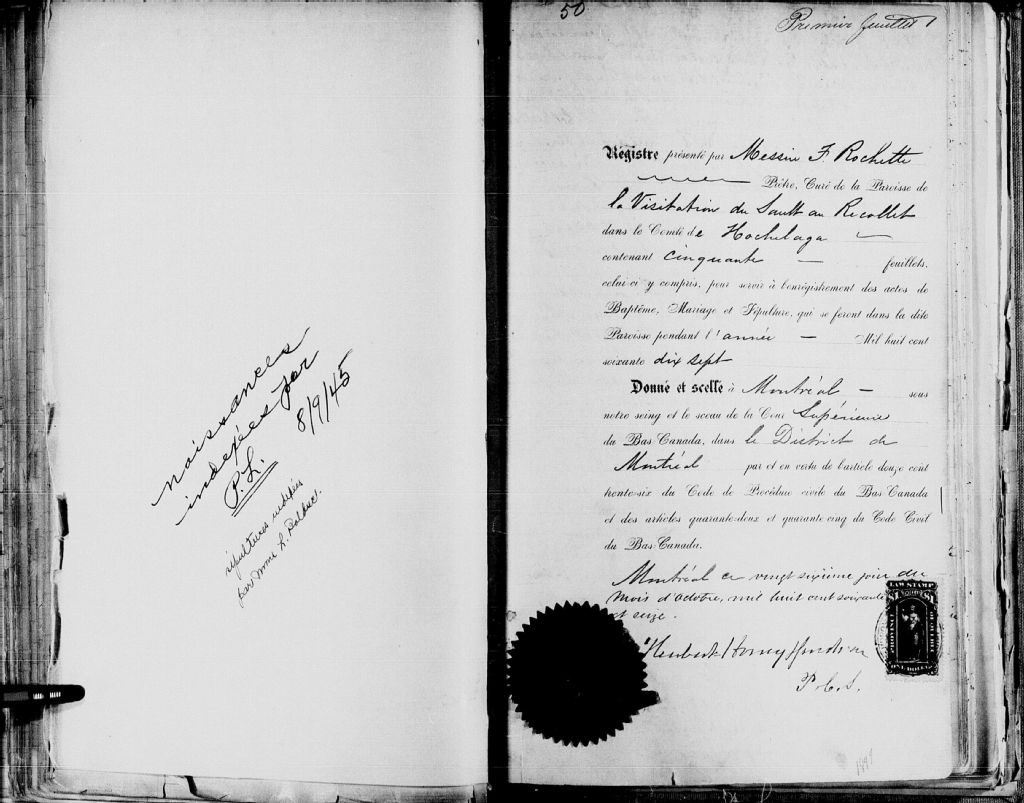 naissances
indexées par
P. L. 8/9/45
sépultures indexées
par Mme L.
50
Premier feuillet
Régistre présenté par Messire F. Rochette
Prêtre, Curé de la Paroisse de
la Visitation du Sault au Recollet
dans le Comté de Hochelaga
contenant cinquante — feuillets,
celui-ci y compris, pour servir à l'enrégistrement des actes de
Baptême, Mariage et Sépulture, qui se feront dans la dite
Paroisse pendant l'année — Mil huit cent
soixante dix sept
Donné et scellé à Montréal — sous
notre seing et le sceau de la Cour Supérieure
du Bas-Canada, dans le District de
Montréal par et en vertu de l'article douze cent
trente-six du Code de Procédure civile du Bas-Canada
et des articles quarante-deux et quarante-cinq du Code Civil
du Bas-Canada.
Montréal ce vingt sixième jour du
mois d'octobre, mil huit cent soixante
et seize.
P. C. S.
LAW STAMP
PROVINCE
ONE DOLLAR